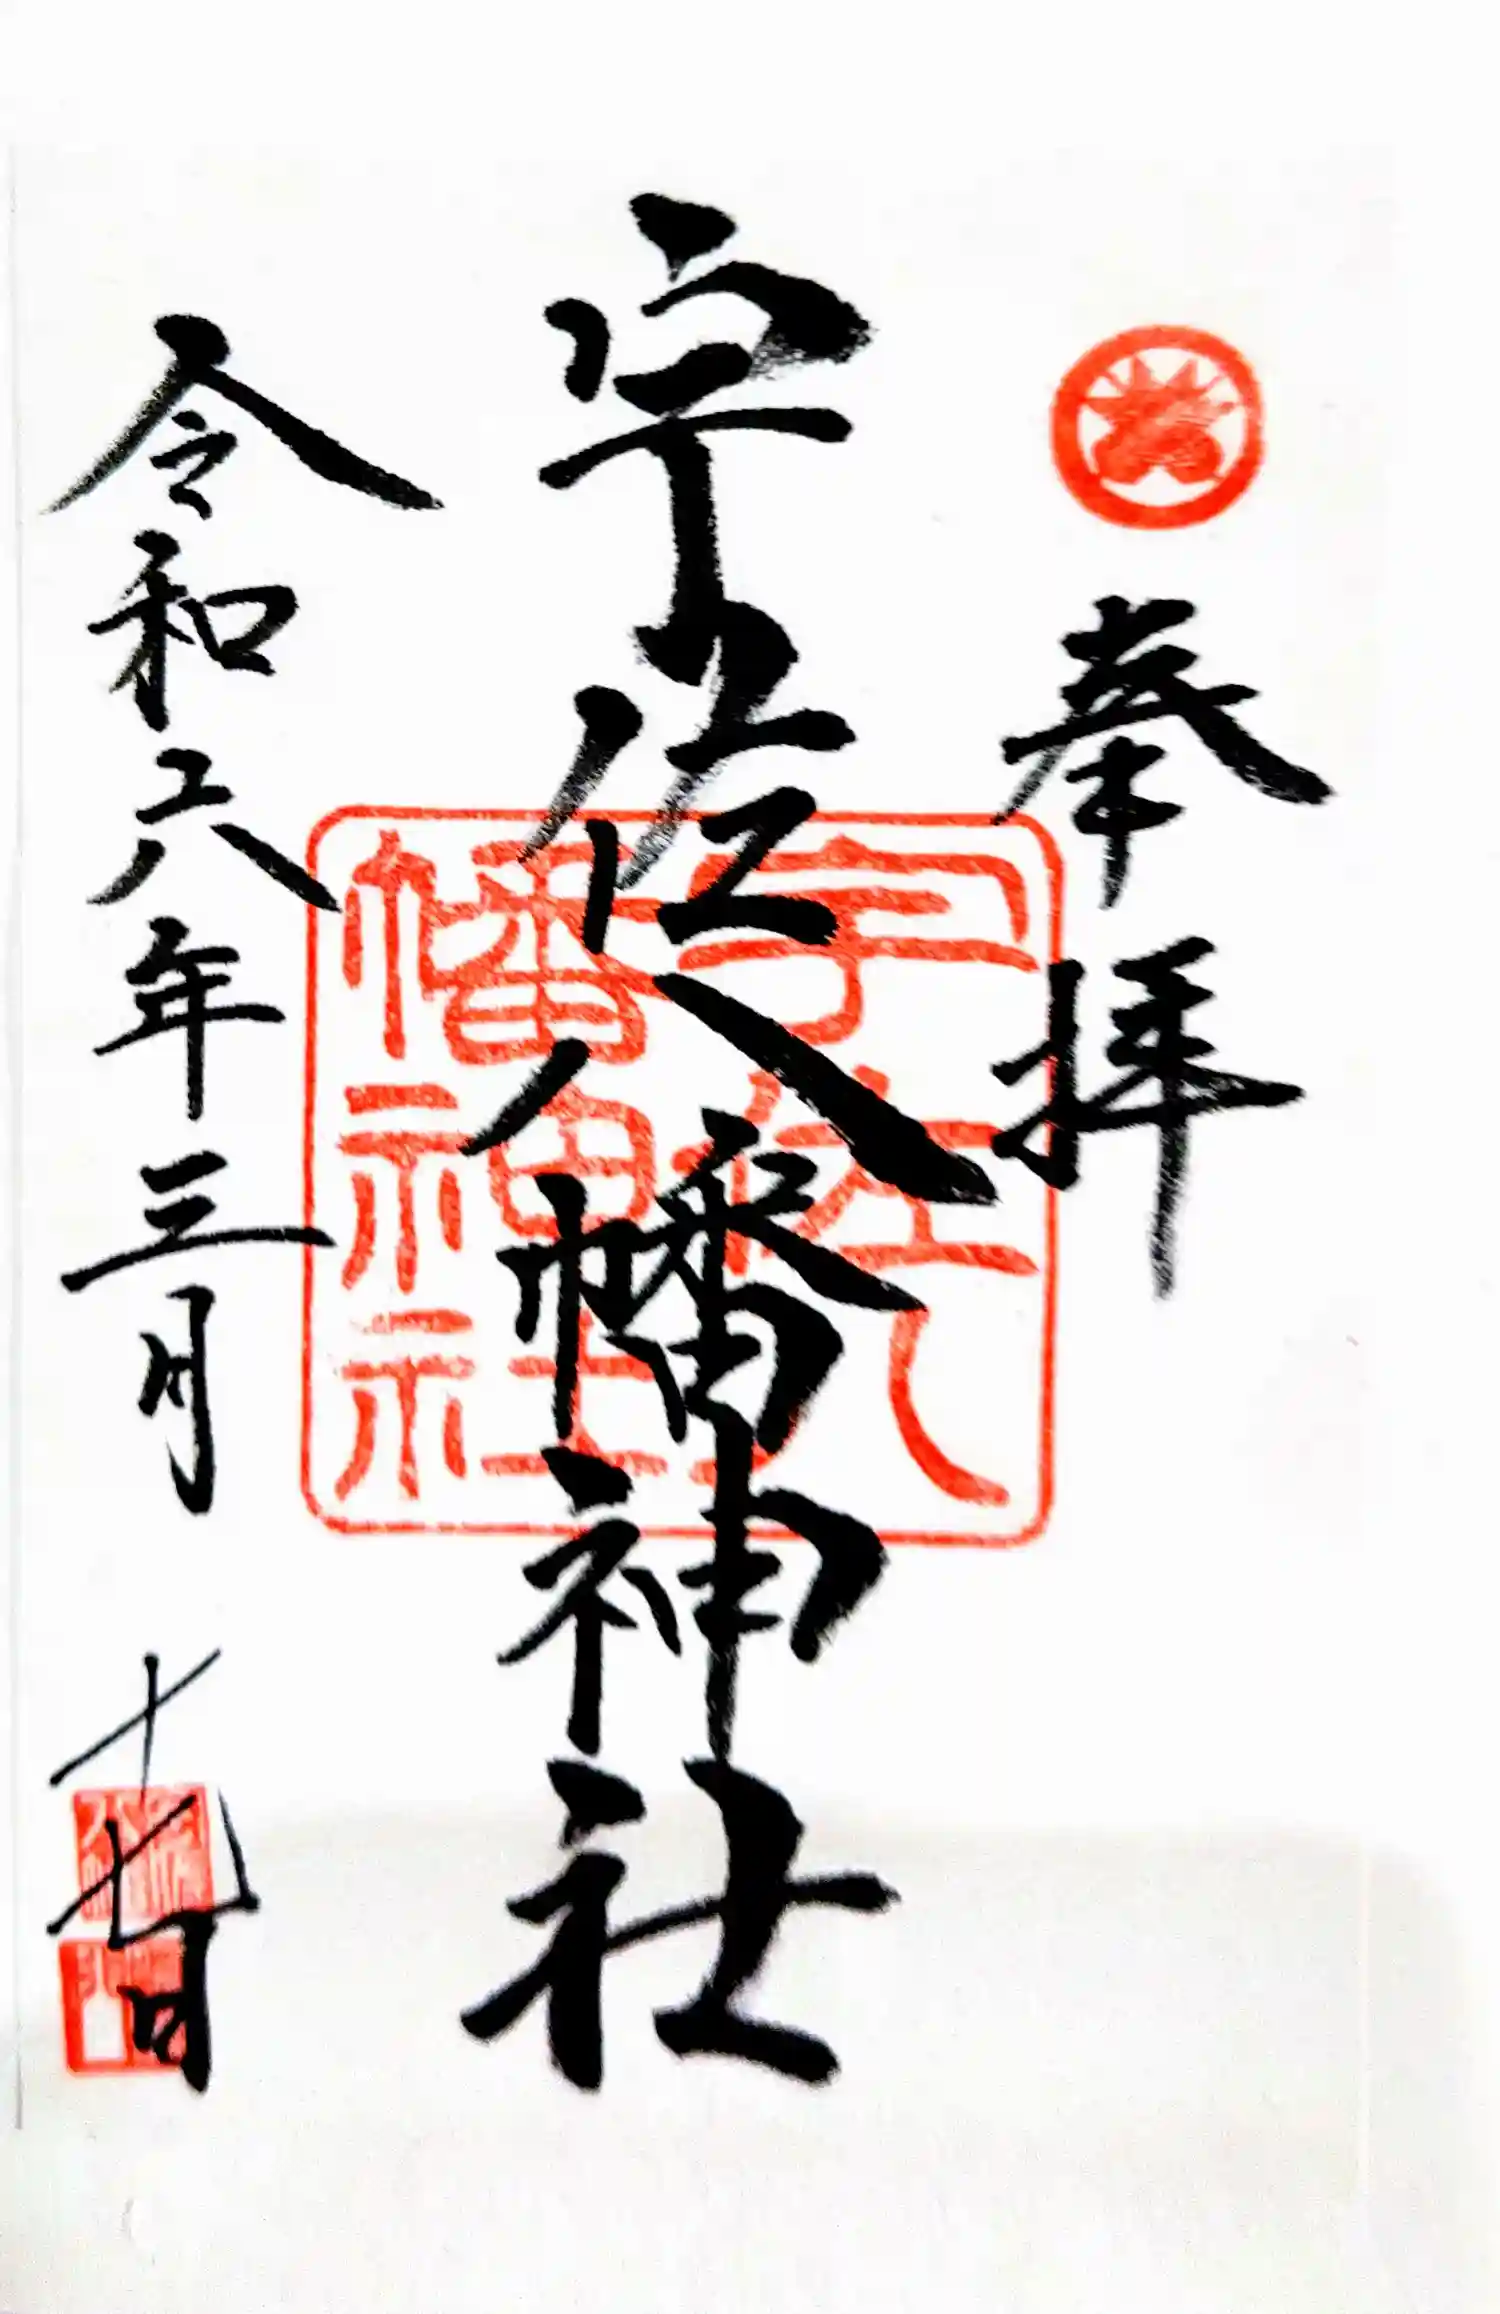 奉拝
宇佐八幡神社
宇佐八
幡神社
令和六年三月十七日